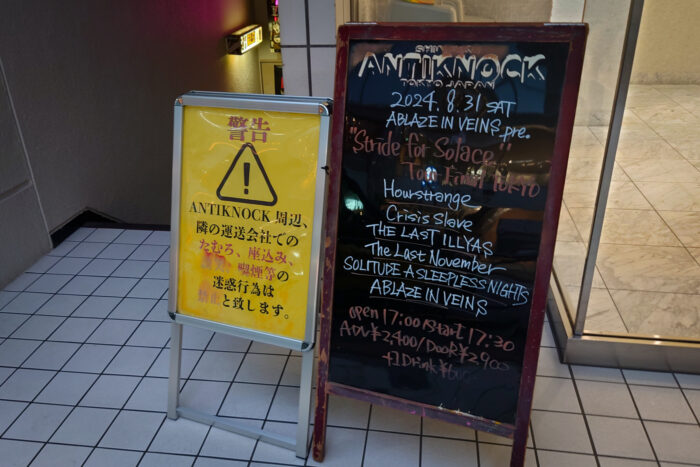 警告
ANTIKNOCK 周辺、
隣の運送会社での
たむろ、座込み、
喫煙等の
迷惑行為は
禁止と致します。
ANTIKNOCK
TOKYO JAPAN
2024. 8. 31 SAT
ABLAZE IN VEINS pre.
"Stride for Solace"
Tour Final TOKYO
Hourstrange
Crisis Slave
THE LAST ILLYAS
The Last November
SOLITUDE A SLEEPLESS NIGHTS
ABLAZE IN VEINS
open 17:00 / start 17:30
ADV ¥2,400 / DOOR ¥2,900
+1 Drink ¥600